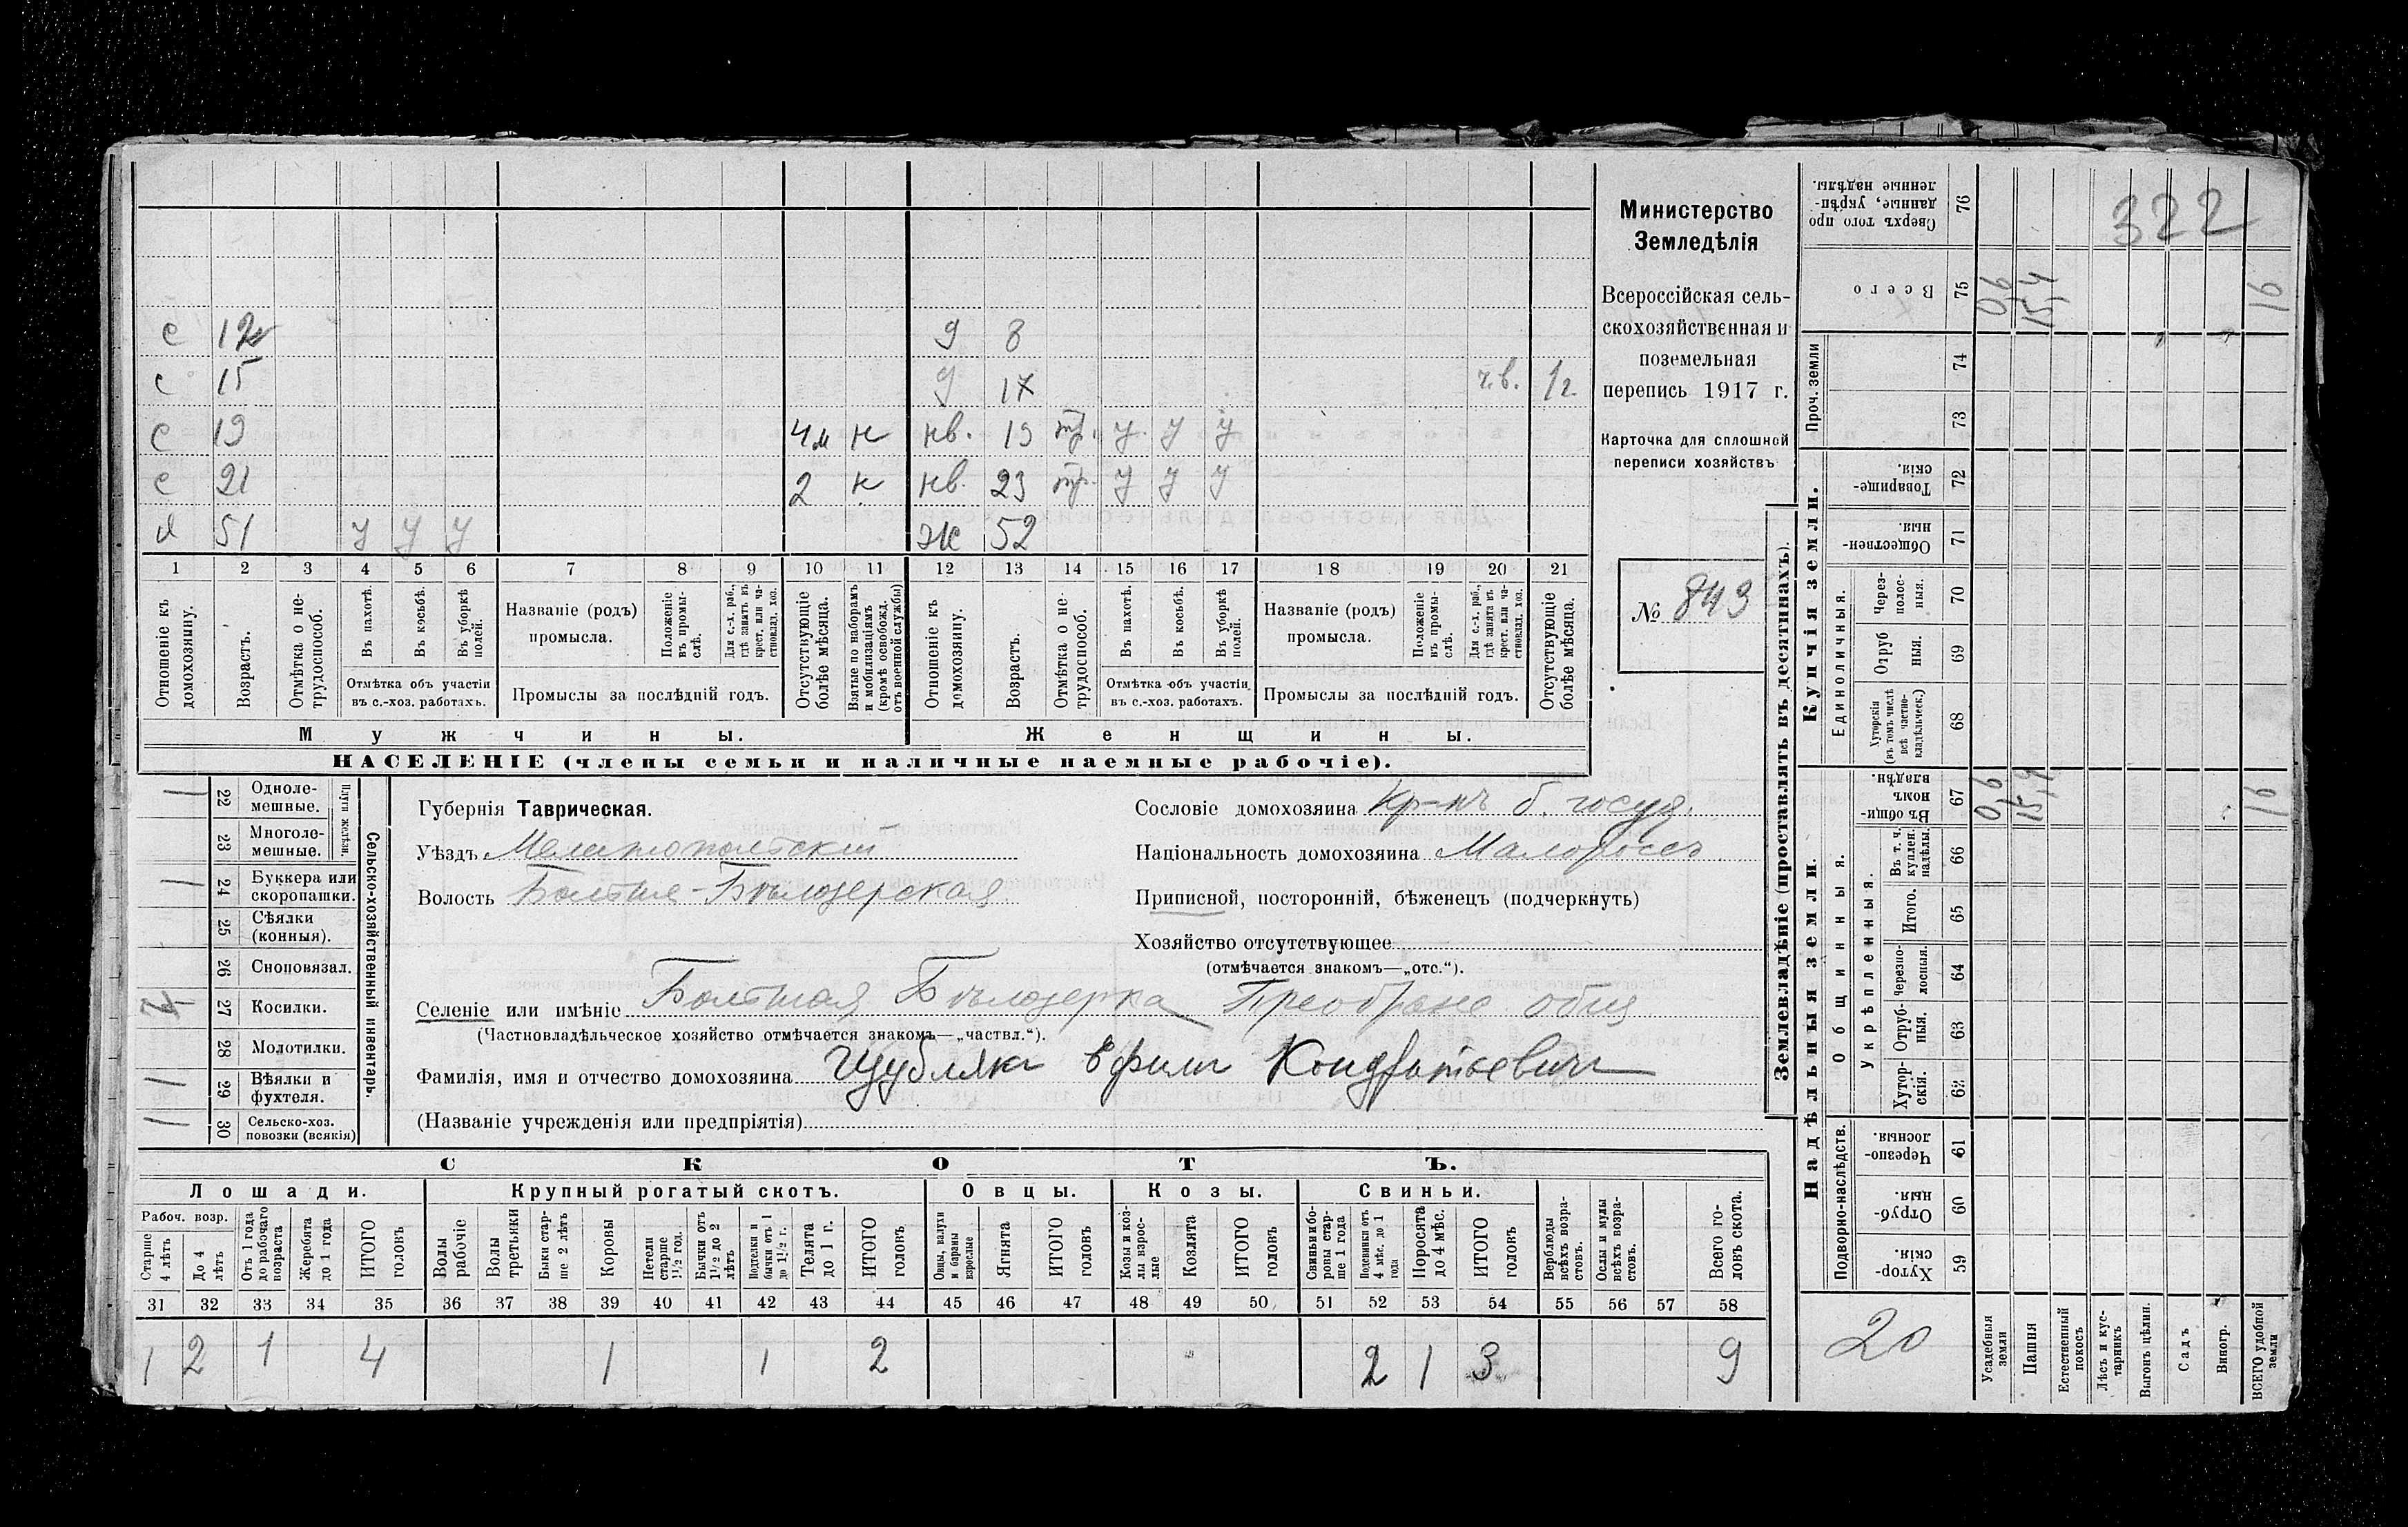 322
с 12 9 8
с 15 д 17 ч.в. 1/2
с 19 4м н нв. 19 тр. у у у
с 21 2 н нв. 23 тр. у у у
я 51 у у у ж 52
1 2 3 4 5 6 7 8 9 10 11 12 13 14 15 16 17 18 19 20 21
Отношеніе къ домохозяину.
Возрастъ.
Отмѣтка о не-трудоспособ.
Въ пахотѣ.
Въ косьбѣ.
Въ уборкѣ полей.
Отмѣтка объ участіи
въ с.-хоз. работахъ.
Названіе (родъ)
промысла.
Положеніе въ промы-слѣ.
Для с.-х. раб., гдѣ занятъ въ крест. или ча-стновлад. хоз.
Промыслы за послѣдній годъ.
Отсутствующіе болѣе мѣсяца.
Взятые по наборамъ и мобилизаціямъ (кромѣ освобожд. отъ военной службы)
Отношеніе къ домохозяину.
Возрастъ.
Отмѣтка о не-трудоспособ.
Въ пахотѣ.
Въ косьбѣ.
Въ уборкѣ полей.
Отмѣтка объ участіи
въ с.-хоз. работахъ.
Названіе (родъ)
промысла.
Положеніе въ промы-слѣ.
Для с.-х. раб., гдѣ занята въ крест. или ча-стновлад. хоз.
Промыслы за послѣдній годъ.
Отсутствующіе болѣе мѣсяца.
Мужчины. Женщины.
НАСЕЛЕНІЕ (члены семьи и наличные наемные рабочіе).
Министерство
Земледѣлія
Всероссійская сель-
скохозяйственная и
поземельная
перепись 1917 г.
Карточка для сплошной
переписи хозяйствъ
№ 849
Сельско-хозяйственный инвентарь.
Плуги желѣзн.
1 22 Одноле-мешные.
23 Многоле-мешные.
1 24 Буккера или скоропашки.
25 Сѣялки (конныя).
26 Сноповязал.
27 Косилки.
28 Молотилки.
1 29 Вѣялки и фухтеля.
1 30 Сельско-хоз. повозки (всякія)
Губернія Таврическая.
Уѣздъ Мелитопольскій
Волость Больше-Бѣлозерская
Сословіе домохозяина Кр-нъ б. госуд.
Національность домохозяина Малороссъ
Приписной, посторонній, бѣженецъ (подчеркнуть)
Хозяйство отсутствующее
(отмѣчается знакомъ—„отс.“).
Селеніе или имѣніе Большая Бѣлозерка Преображе общ
(Частновладѣльческое хозяйство отмѣчается знакомъ—„частвл.“).
Фамилія, имя и отчество домохозяина Кондратьевичъ
(Названіе учрежденія или предпріятія)
СКОТЪ.
Лошади. Крупный рогатый скотъ. Овцы. Козы. Свиньи.
Рабоч. возр.
Старше 4 лѣтъ
До 4 лѣтъ
Отъ 1 года до рабочаго возраста
Жеребята до 1 года
ИТОГО головъ
Волы рабочіе
Волы третьяки
Быки стар-ше 2 лѣтъ
Коровы
Нетели старше 1½ год.
Бычки отъ 1½ до 2 лѣтъ
Подтелки и бычки отъ 1 до 1½ г.
Телята до 1 г.
ИТОГО головъ
Овцы, валухи и бараны взрослые
Ягнята
ИТОГО головъ
Козы и коз-лы взрос-лые
Козлята
ИТОГО головъ
Свиньи и бо-ровы стар-ше 1 года
Подсвинки отъ 4 мѣс. до 1 года
Поросята до 4 мѣс.
ИТОГО головъ
Верблюды всѣхъ возра-стовъ.
Ослы и мулы всѣхъ возра-стовъ.
Всего го-ловъ скота.
31 32 33 34 35 36 37 38 39 40 41 42 43 44 45 46 47 48 49 50 51 52 53 54 55 56 57 58
1 2 1 4 1 1 2 2 1 3 9
Землевладѣніе (проставлять въ десятинахъ).
Купчія земли.
Надѣльныя земли.
Сверхъ того про данные, укрѣп-ленные надѣлы. 76
Всего 75 0,6 15,4 16
Проч. земли 74
73
Товарище-скія. 72
Обществен-ныя. 71
Единоличныя.
Через-полос-ныя. 70
Отруб ныя. 69
Хуторскія (въ томъ числѣ всѣ частно-владѣльческ.) 68
Общинныя.
Въ общи-номъ владѣн. 67 0,6 15,4 16
Укрѣпленныя.
Въ т. ч. куплен. надѣлы. 66
Итого. 65
Черезпо-лосныя. 64
Отруб-ныя. 63
Хутор-скія. 62
Подворно-наслѣдств.
Черезпо-лосныя. 61
Отруб-ныя. 60
Хутор-скія. 59
20
Усадебныя земли
Пашня
Естественный покосъ
Лѣсъ и кус-тарникъ
Выгонъ цѣлин.
Садъ
Виногр.
ВСЕГО удобной земли